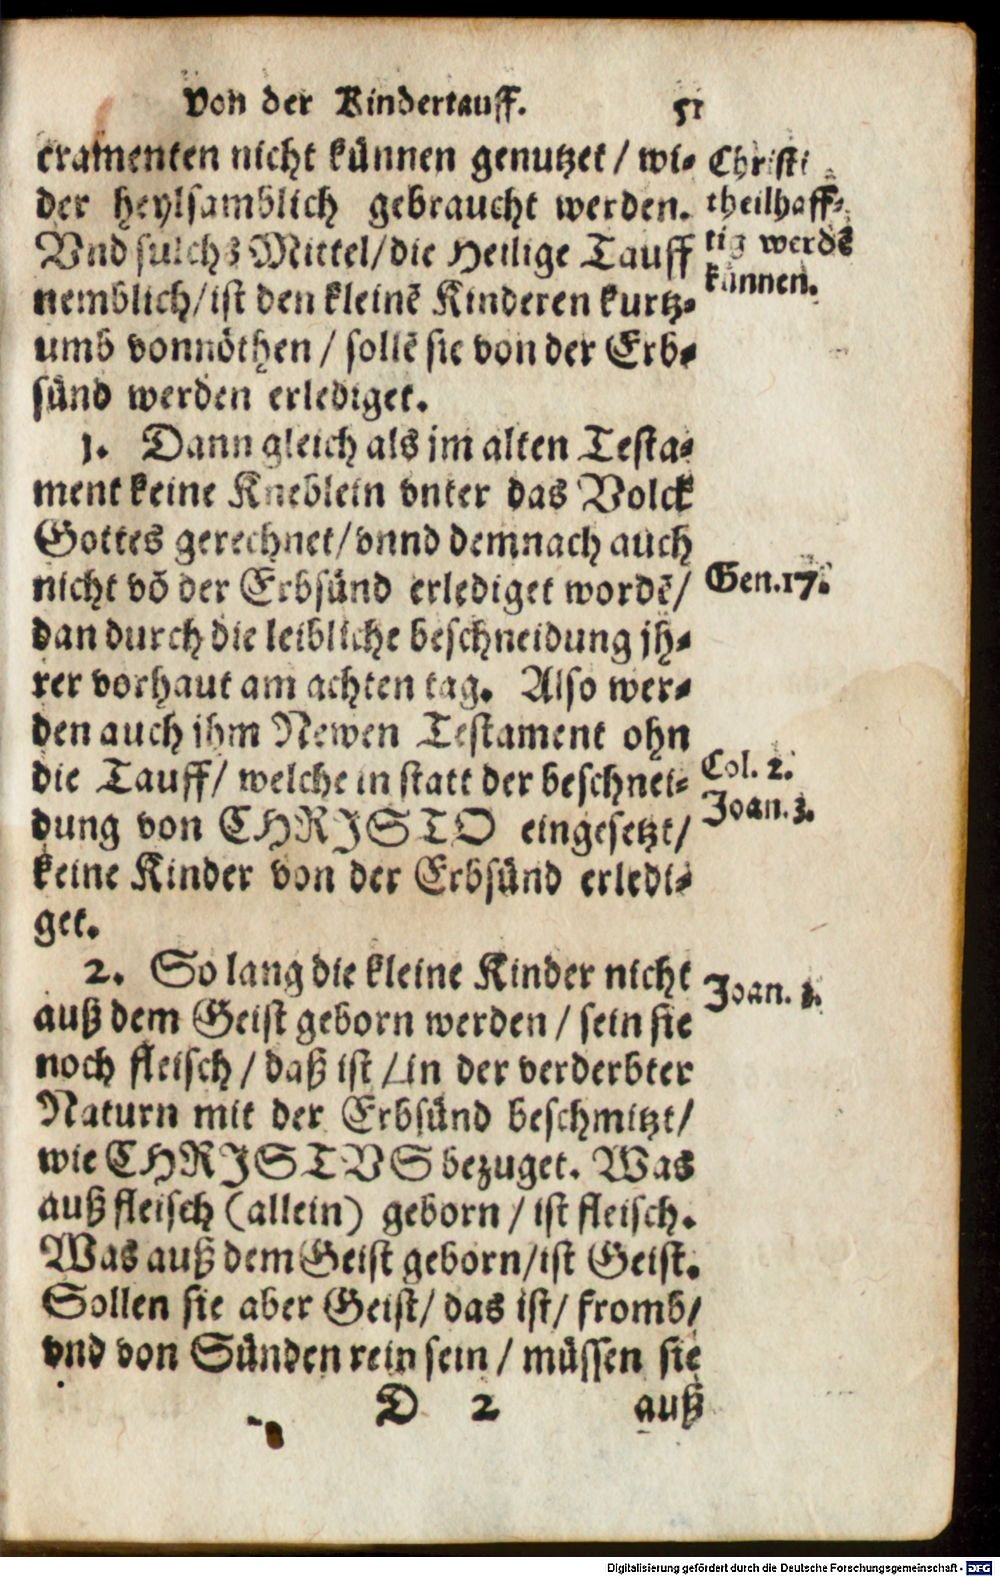 Von der Kindertauff. 51
cramenten nicht künnen genutzet / wi-
der heylsamblich gebraucht werden.
Vnd sulchs Mittel/die Heilige Tauff
nemblich/ist den kleinẽ Kinderen kurtz-
umb vonnöthen / sollẽ sie von der Erb-
sünd werden erlediget.
Christi
theilhaff-
tig werdẽ
künnen.
1. Dann gleich als jm alten Testa-
ment keine Kneblein vnter das Volck
Gottes gerechnet/vnnd demnach auch
nicht võ der Erbsünd erlediget wordẽ/
dan durch die leibliche beschneidung jh-
rer vorhaut am achten tag. Also wer-
den auch ihm Newen Testament ohn
die Tauff/ welche in statt der beschnei-
dung von CHRISTO eingesetzt/
keine Kinder von der Erbsünd erledi-
get.
Gen.17.
Col. 2.
Joan.3.
2. So lang die kleine Kinder nicht
auß dem Geist geborn werden / sein sie
noch fleisch / daß ist / in der verderbter
Naturn mit der Erbsünd beschmitzt/
wie CHRISTVS bezuget. Was
auß fleisch (allein) geborn / ist fleisch.
Was auß dem Geist geborn/ist Geist.
Sollen sie aber Geist/ das ist/ fromb/
vnd von Sünden rein sein / müssen sie
Joan. 3.
D 2 auß
Digitalisierung gefördert durch die Deutsche Forschungsgemeinschaft - DFG